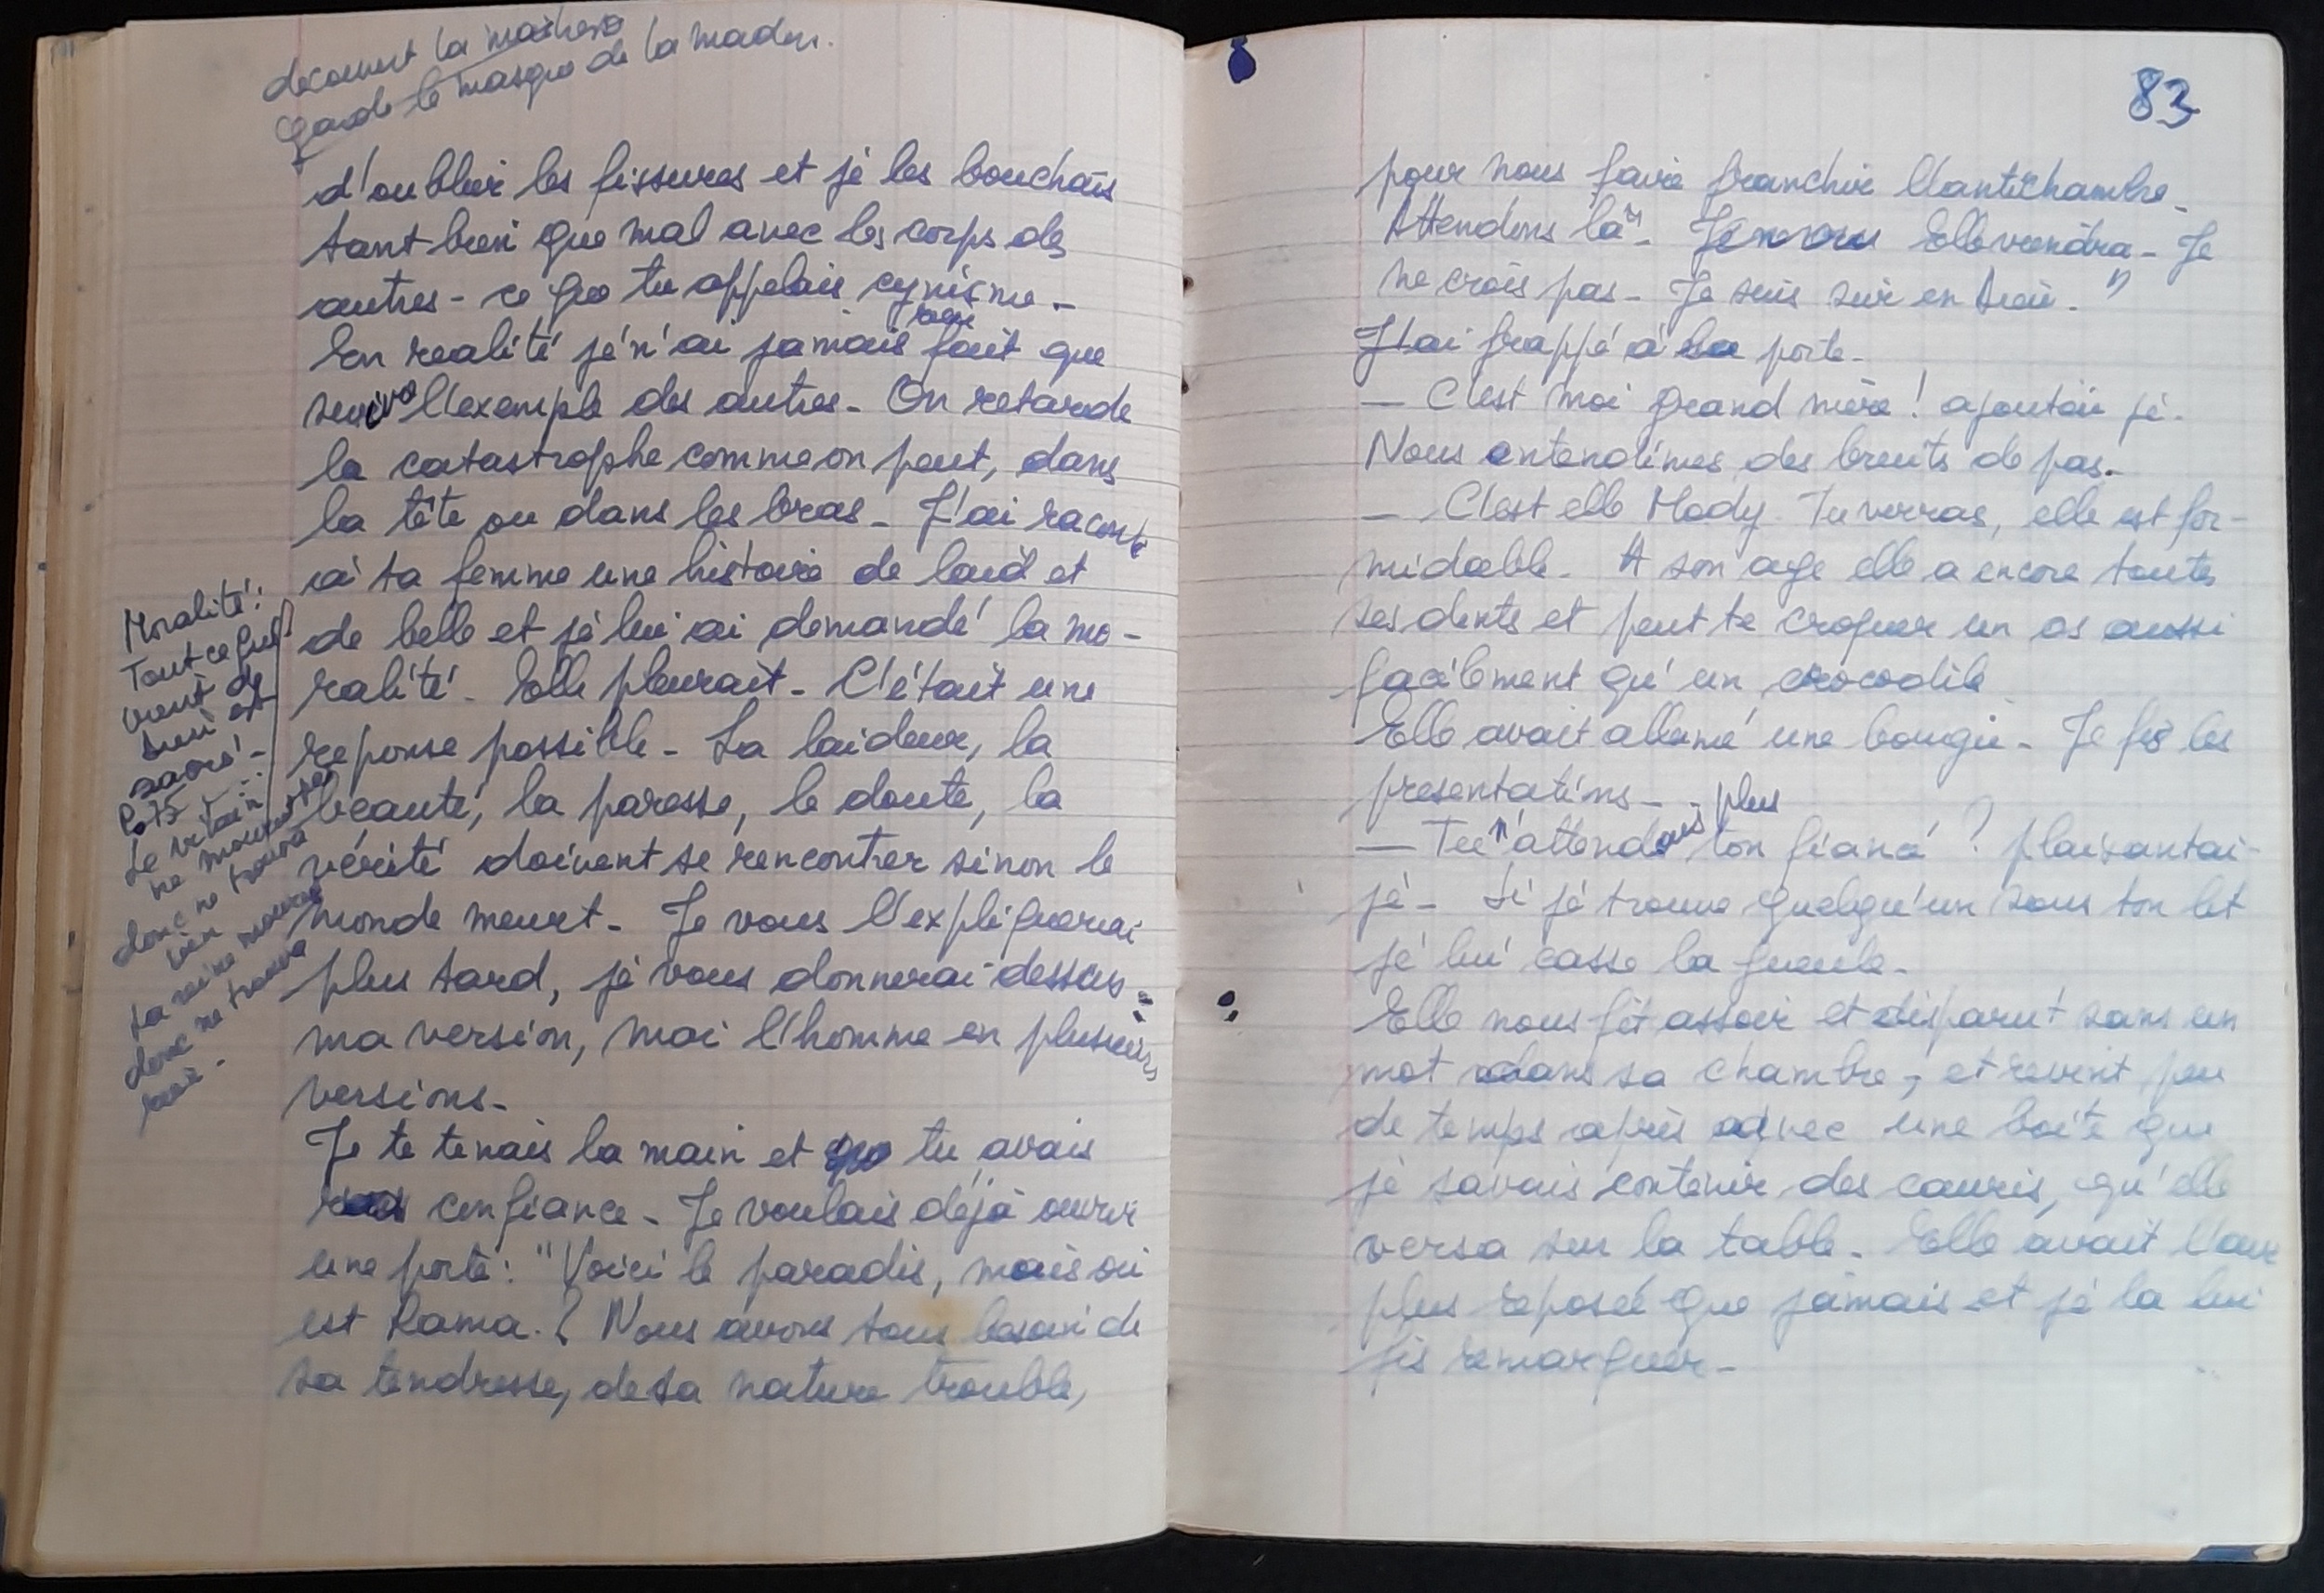 decouvert la
garde le masque de la madon.
d'oublier les fissures et je les bouchais
tant bien que mal avec les corps des
autres - ce que tu appelais cynisme -
En realité je n'ai jamais rien fait que
suivre l'exemple des autres - On retarde
la catastrophe comme on peut, dans
la tête ou dans les bras - J'ai raconté
à ta femme une histoire de laid et
de belle et je lui ai demandé la mo-
ralité - Elle pleurait - C'était une
reponse possible - La laideur, la
beauté, la paresse, le doute, la
vérité doivent se rencontrer sinon le
monde meurt - Je vous l'expliquerai
plus tard, je vous donnerai dessus
ma version, moi l'homme en plusieurs
versions -
Je te tenais la main et tu avais
confiance - Je voulais déjà ouvrir
une porte : "Voici le paradis, mais où
est Rama ? Nous avons tous besoin de
sa tendresse, de sa nature trouble,
Moralité :
Tout ce qui
vient de
dieu est
sacré -
Le vilain
ne
donc ne trouva
rien
La reine
donc ne trouva
83
pour nous faire franchir l'antichambre -
Attendons là" - Elle viendra - Je
ne crois pas - Je suis sur en dieu - "
J'ai frappé à la porte -
— C'est moi grand mère ! ajoutai je -
Nous entendîmes des bruits de pas -
— C'est elle Mody Tu verras, elle est for-
midable - A son age elle a encore toutes
ses dents et peut te croquer un os aussi
facilement qu'un crocodile
Elle avait allumé une bougie - Je fis les
presentations -
— Tu n'attends plus ton fiancé ? plaisantai-
je - Si je trouve quelqu'un sous ton lit
je lui casse la gueule -
Elle nous fit assoir et disparut sans un
mot dans sa chambre, et revint peu
de temps après avec une boîte que
je savais contenir des cauris, qu'elle
versa sur la table - Elle avait l'air
plus reposée que jamais et je la lui
fis remarquer -